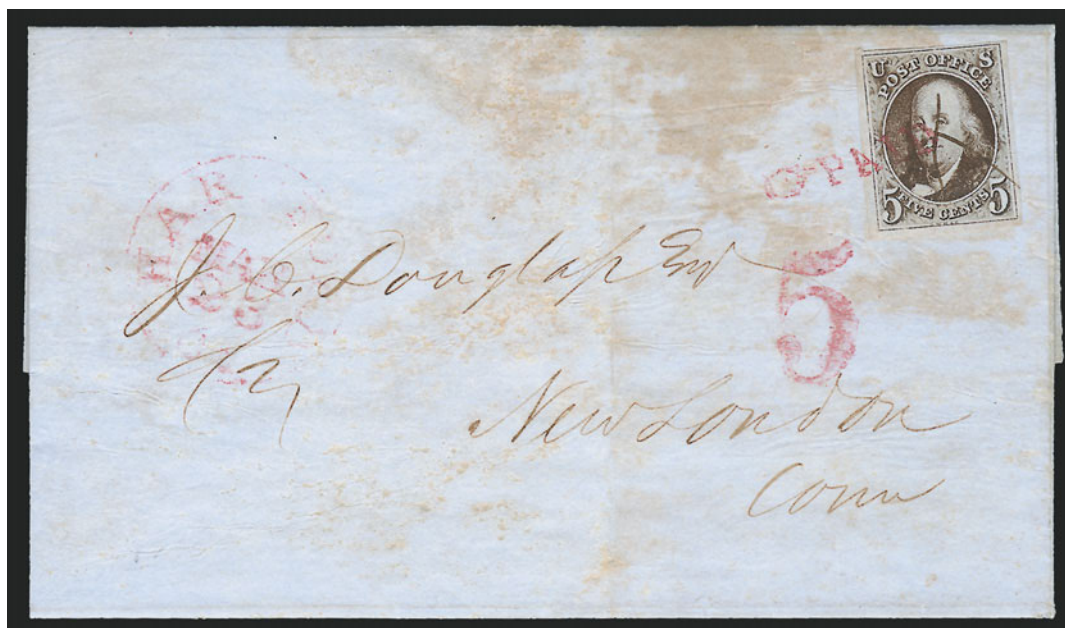 U S
POST OFFICE
PAID
5 FIVE CENTS 5
HAR
5
J. C. Douglass Esq
New London
Conn